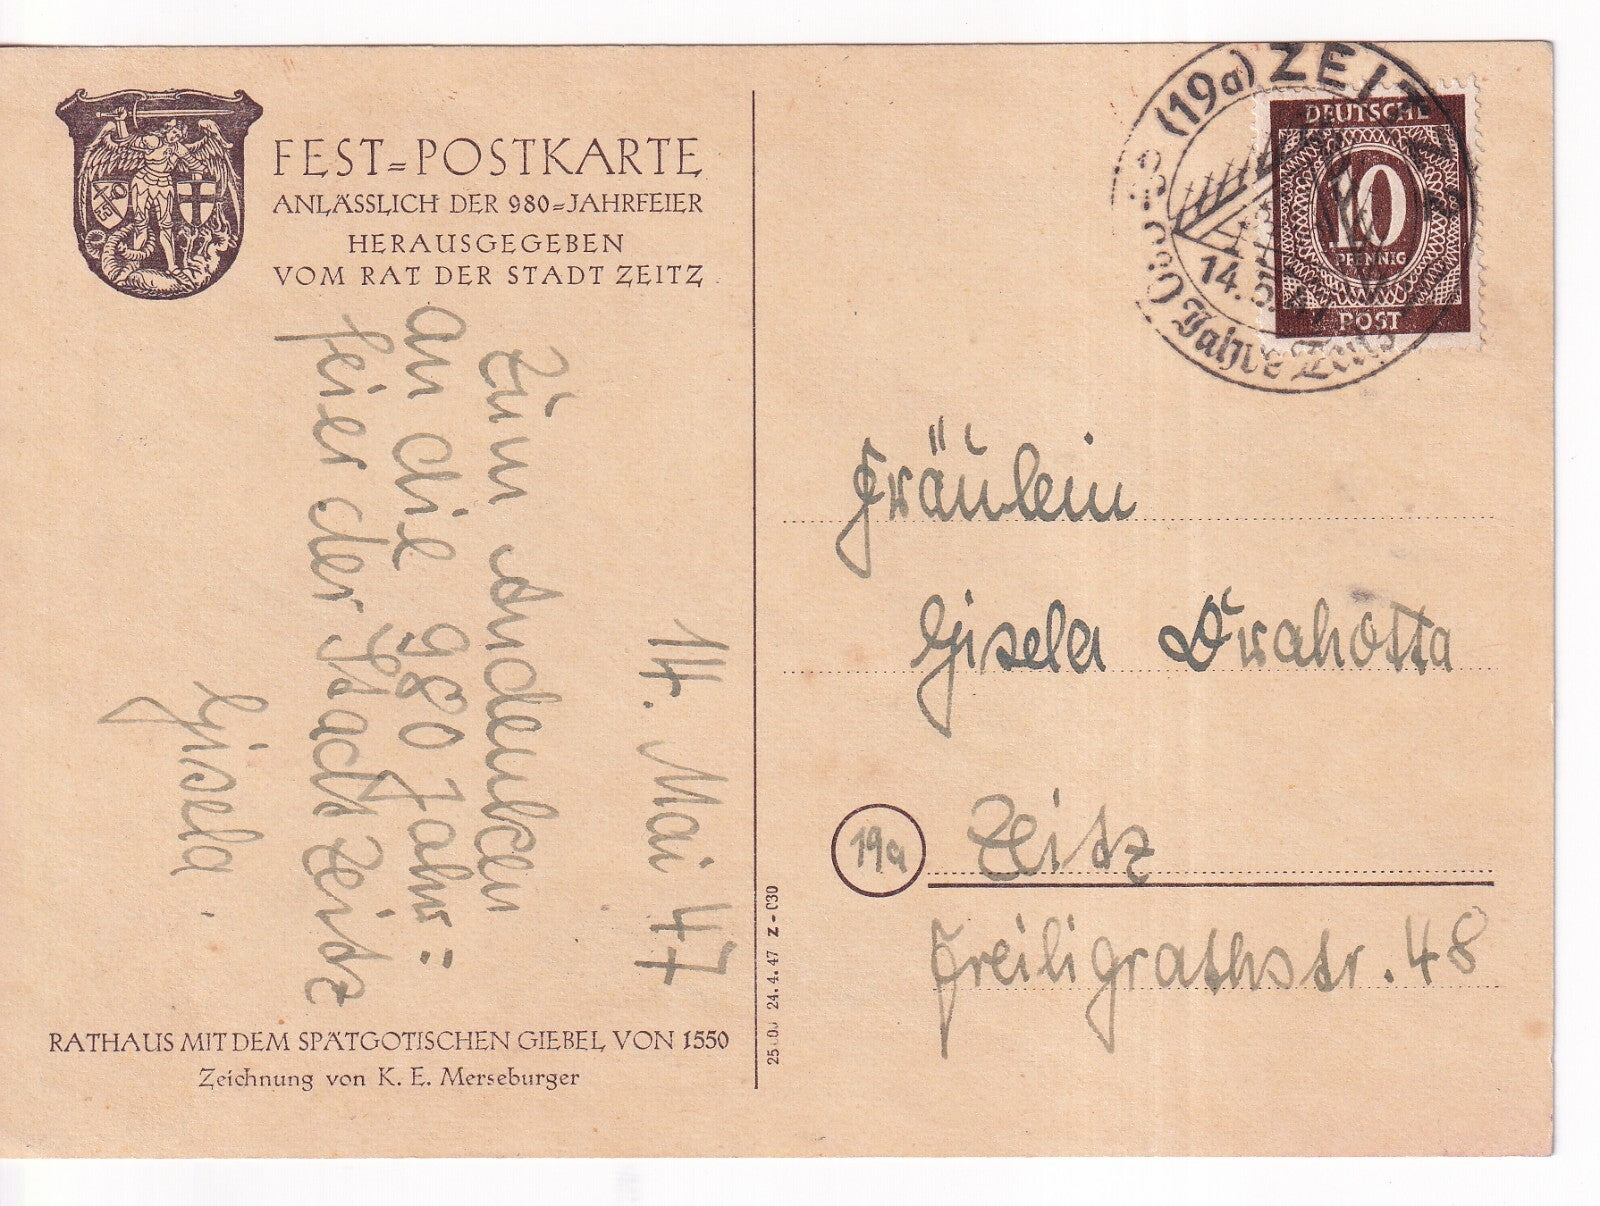 FEST=POSTKARTE
ANLÄSSLICH DER 980=JAHRFEIER
HERAUSGEGEBEN
VOM RAT DER STADT ZEITZ
14. Mai 47
Zum Andenken
an die 980 Jahr=
feier der Stadt Zeitz
Gisela.
RATHAUS MIT DEM SPÄTGOTISCHEN GIEBEL VON 1550
Zeichnung von K. E. Merseburger
24. 4. 47 Z - C30
(19a) ZEITZ
14. 5. 47
980 Jahre Zeitz
DEUTSCHE
10
PFENNIG
POST
Fräulein
Gisela Drahotta
19a Zeitz
Freiligrathstr. 48